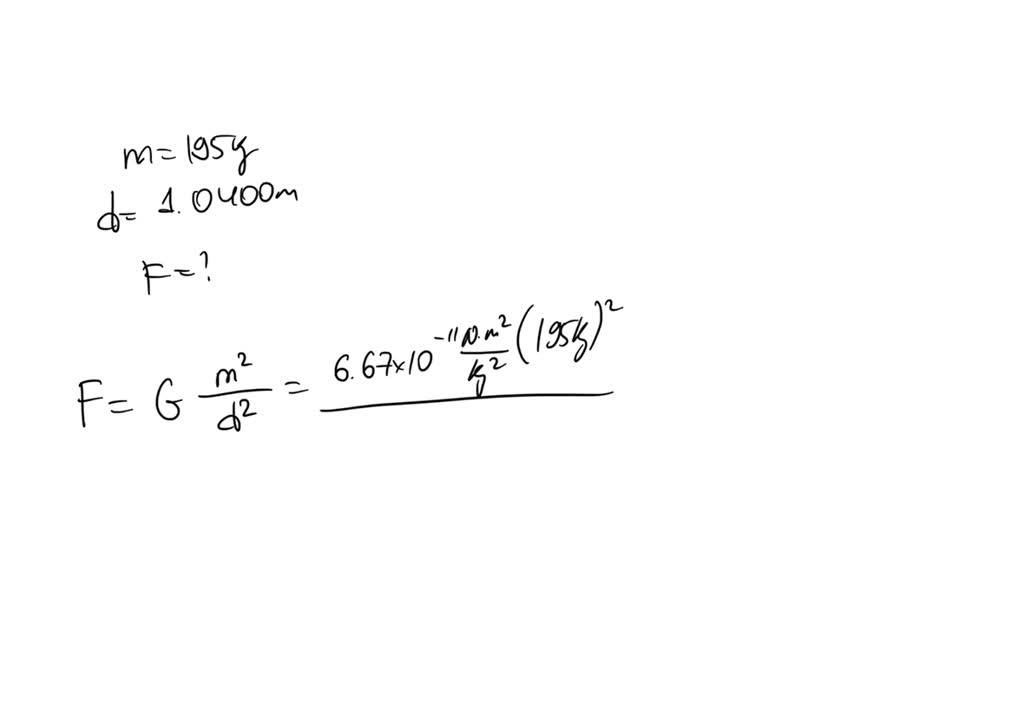 m = 195kg
d = 1.0400m
F = ?
F = G m²/d² = 6.67×10⁻¹¹ N·m²/kg² (195kg)²